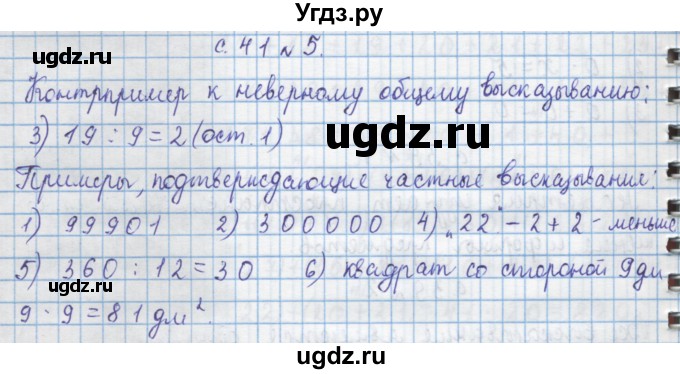 Угдз.ру
с. 41 № 5.
Контрпример к неверному общему высказыванию:
3) 19 : 9 = 2 (ост. 1)
Примеры, подтверждающие частные высказывание:
1) 99901 2) 300000 4) „22" – 2 + 2 – меньше
5) 360 : 12 = 30 6) квадрат со стороной 9 дм
9 · 9 = 81 дм².
ugdz.ru
ugdz.ru
ugdz.ru
ugdz.ru
ugdz.ru
ugdz.ru
ugdz.ru
ugdz.ru